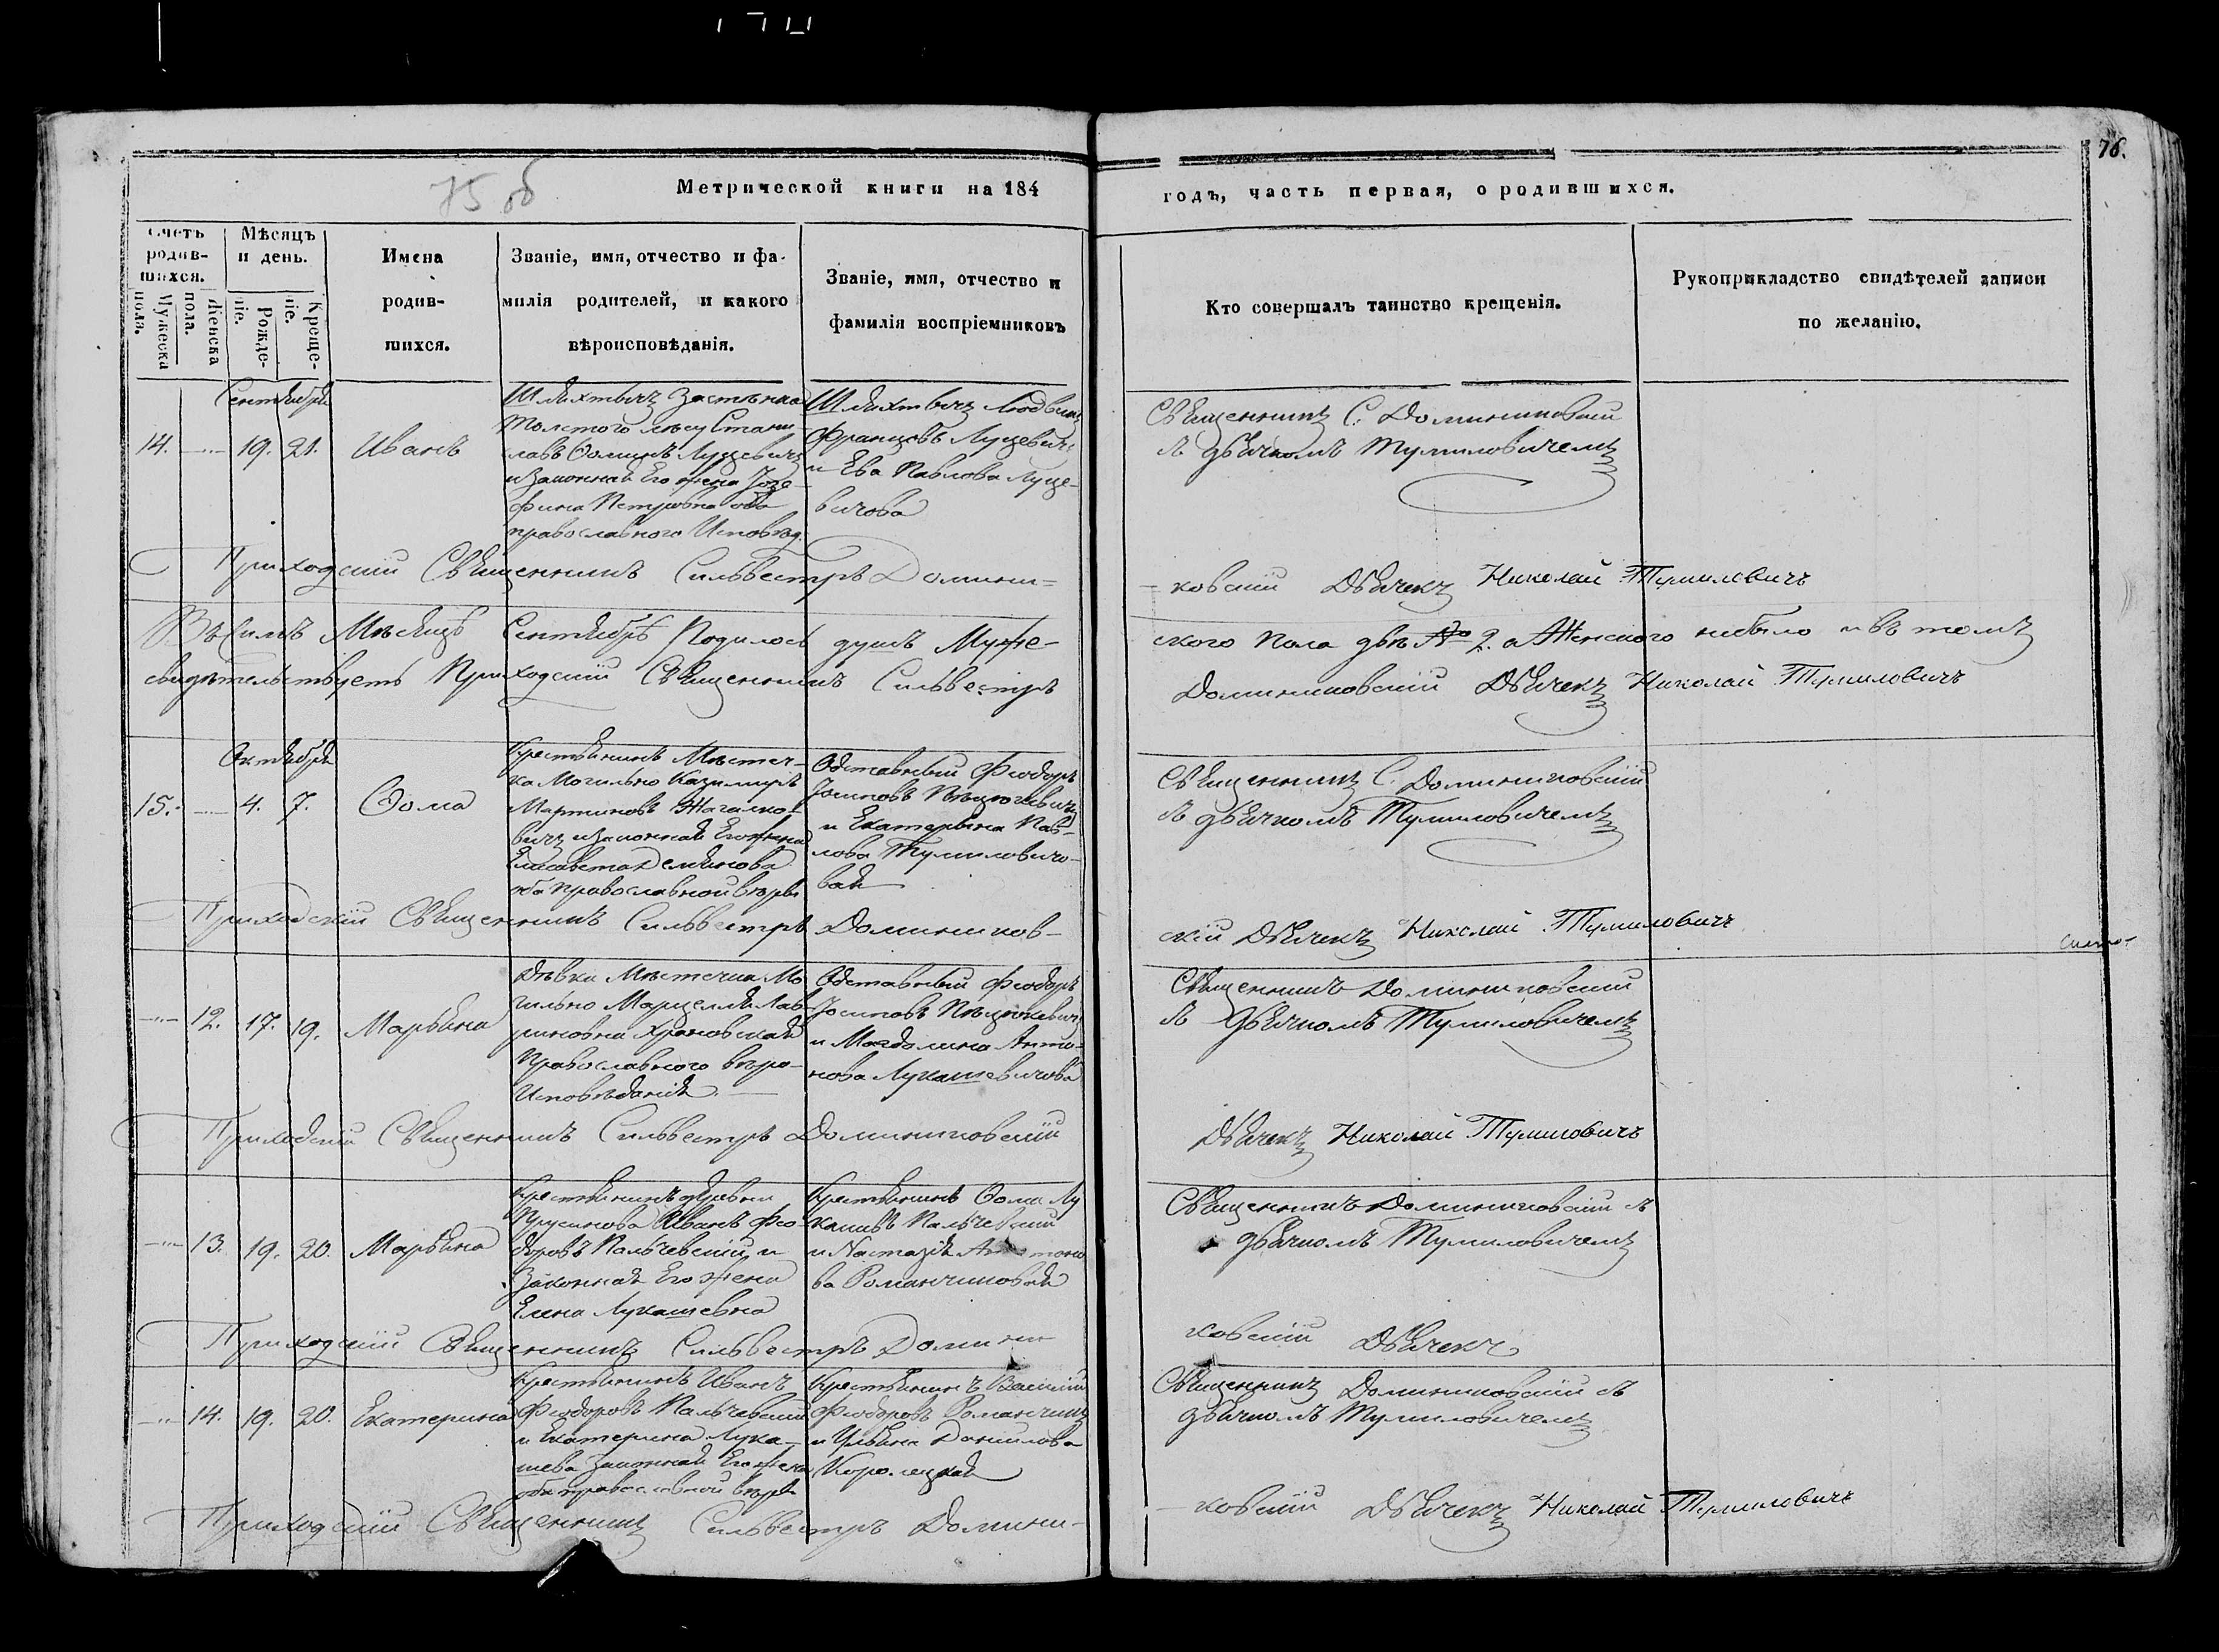 75 об
76.
Метрической книги на 184
годъ, часть первая, о родившихся.
Счетъ родив-
шихся.
Мужеска пола.
Женска пола.
Мѣсяцъ
и день.
Рожде-
ніе.
Креще-
ніе.
Имена
родив-
шихся.
Званіе, имя, отчество и фа-
милія родителей, и какого
вѣроисповѣданія.
Званіе, имя, отчество и
фамилія воспріемниковъ
Кто совершалъ таинство крещенія.
Рукоприкладство свидѣтелей записи
по желанію.
Сентября
14. 19. 21. Иванъ
Шляхтычъ Застѣнка
Толстого лѣсу Стани-
славъ Ѳоминъ Луцевичъ
и Законная Его жена Іозе-
фина Петровна оба
православного Исповѣд.
Шляхтычъ Людвикъ
Францовъ Луцевичъ
и Ева Павлова Луце-
вичова
Священникъ С. Доминиковскій
съ дьячкомъ Тумиловичемъ
Приходскій Священникъ Сильвестръ Домини=
ковскій Дьячекъ Николай Тумиловичъ
Въ Семъ Мѣсяцѣ Сентябрѣ Родилось душъ Муже-
ского Пола двѣ 2. а Женского небыло и въ томъ
свидѣтельствуетъ Приходскій Священникъ Сильвестръ
Доминиковскій Дьячекъ Николай Тумиловичъ
Октября
15. 4. 7. Ѳома
Крестьянинъ Мѣстеч-
ка Могильно Казимиръ
Мартиновъ Жагалко-
вичъ и Законная Его жена
Елисавета Демьянова
оба православной вѣры
Одставный Феодоръ
Іосиповъ Пѣцюкевичъ
и Екатерына Пав-
лова Тумиловичо-
вая
Священникъ С. Доминиковскій
съ дьячкомъ Тумиловичемъ
Приходскій Священникъ Сильвестръ Домиников-
скій Дьячекъ Николай Тумиловичъ
12. 17. 19. Марьяна
Дѣвка Мѣстечка Мо
гильно Марцелля Лав
риновна Храновская
Православного вѣро-
Исповѣданія.
Одставный Феодоръ
Іосиповъ Пѣцюкевичъ
и Магдалина Анто-
нова Лукашевичова
Священникъ Доминиковскій
съ Дьячкомъ Тумиловичемъ
Приходскій Священникъ Сильвестръ Доминиковскій
Дьячекъ Николай Тумиловичъ
13. 19. 20. Марьяна
Крестьянинъ деревни
Прусинова Иванъ Фео-
доровъ Пальчевскій и
Законная Его жена
Елена Лукашевна
Крестьянинъ Ѳома Лу
кашевъ Пальчевскій
и Настазія
ва Романчиковая
Священникъ Доминиковскій съ
дьячкомъ Тумиловичемъ
Приходскій Священникъ Сильвестръ Домини
ковскій Дьячекъ
14. 19. 20. Екатерина
Крестьянинъ Иванъ
Феодоровъ Пальчевскій
и Екатерина Лука-
шева Законная Его жена
оба православной вѣры
Крестьянинъ Василій
Феодоровъ Романчикъ
и Ульяна Данилова
Священникъ Доминиковскій съ
дьячкомъ Тумиловичемъ
Приходскій Священникъ Сильвестръ Домини-
ковскій Дьячекъ Николай Тумиловичъ